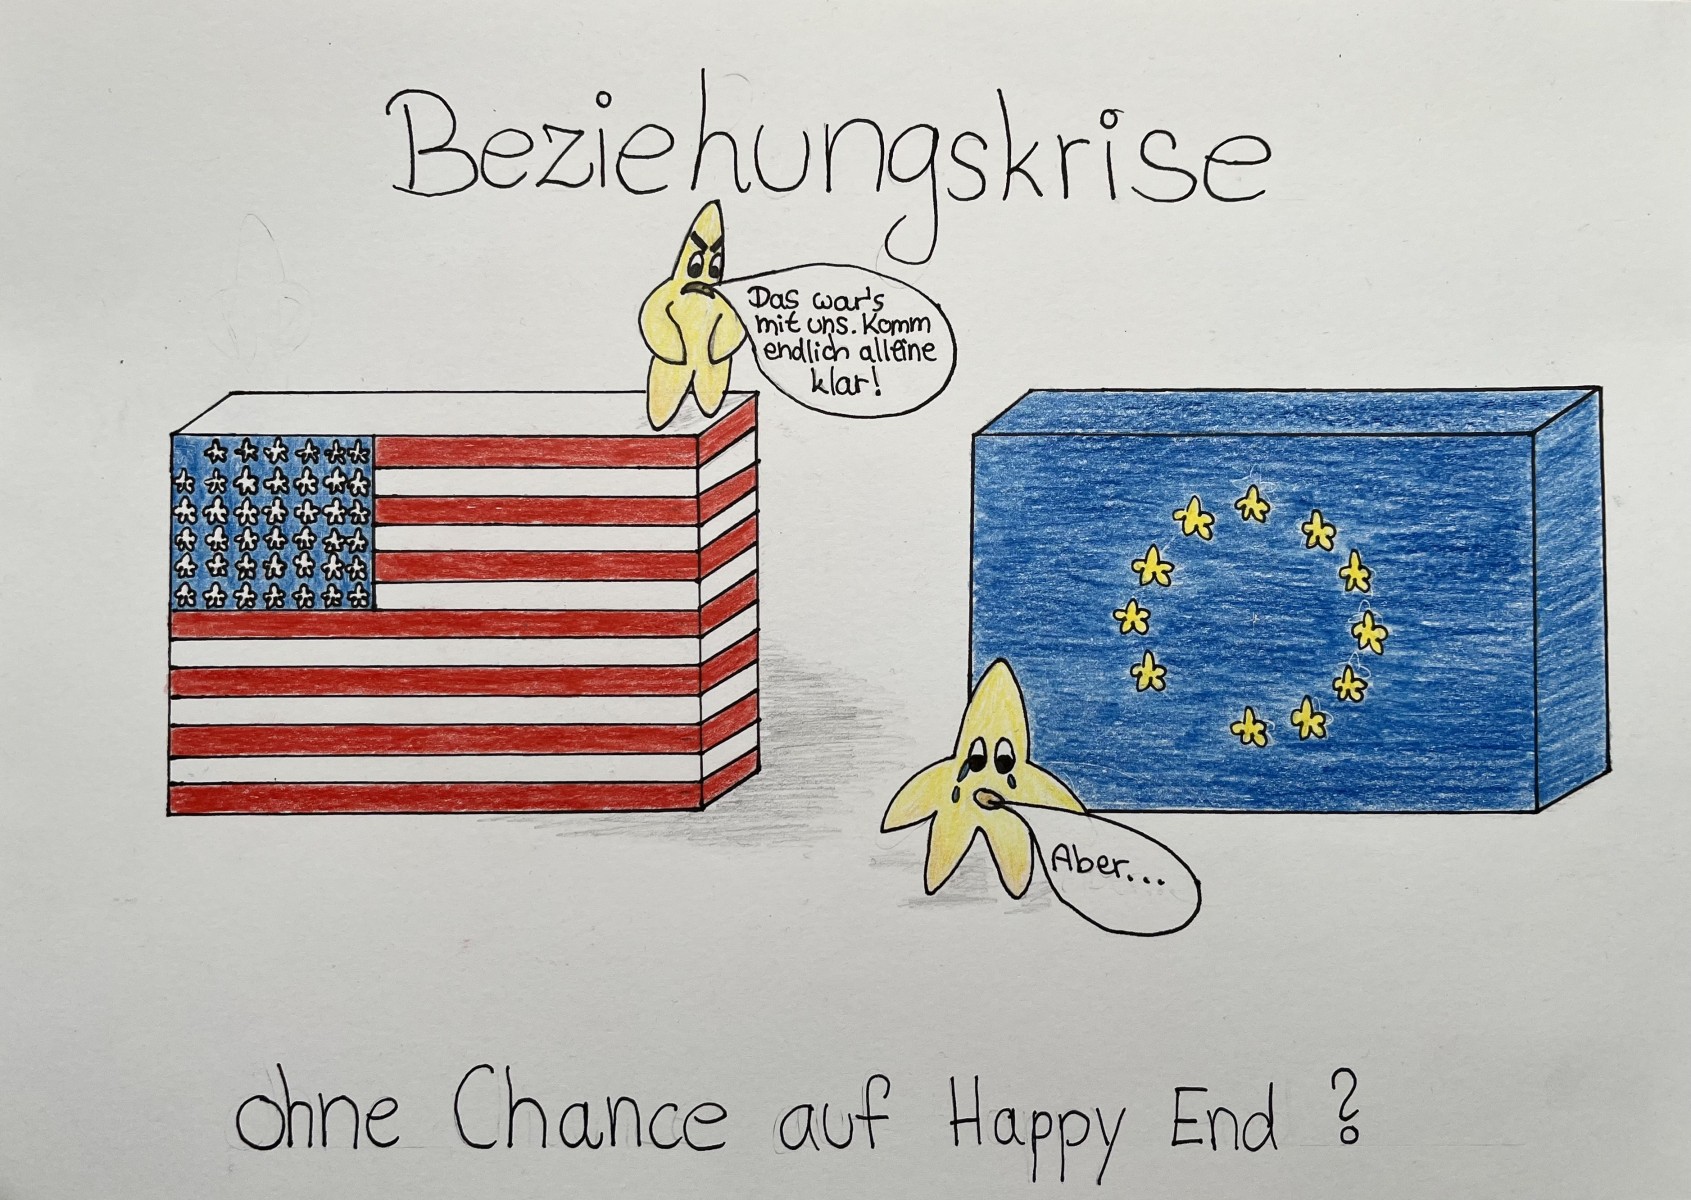 Beziehungskrise
Das war's
mit uns. Komm
endlich alleine
klar!
Aber...
ohne Chance auf Happy End ?